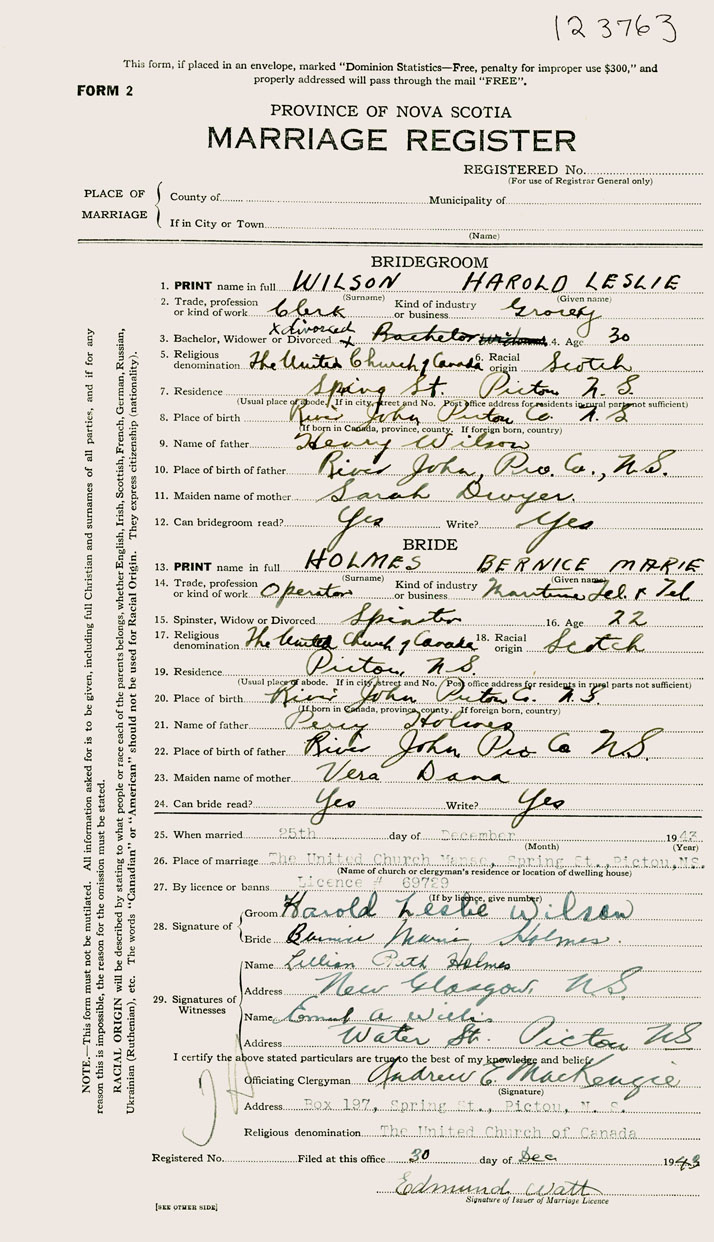 123763
This form, if placed in an envelope, marked “Dominion Statistics—Free, penalty for improper use $300,” and
properly addressed will pass through the mail “FREE”.
FORM 2
PROVINCE OF NOVA SCOTIA
MARRIAGE REGISTER
REGISTERED No.
(For use of Registrar General only)
PLACE OF MARRIAGE
County of Municipality of
If in City or Town
(Name)
BRIDEGROOM
1. PRINT name in full WILSON HAROLD LESLIE
(Surname) (Given name)
2. Trade, profession or kind of work Clerk Kind of industry or business Grocery
x divorced
3. Bachelor, Widower or Divorced x Bachelor 4. Age 30
5. Religious denomination The United Church of Canada 6. Racial origin Scotch
7. Residence Spring St Pictou N.S.
(Usual place of abode. If in city, street and No. Post office address for residents in rural parts not sufficient)
8. Place of birth River John Pictou Co. N.S.
(If born in Canada, province, county. If foreign born, country)
9. Name of father Henry Wilson
10. Place of birth of father River John, Pic. Co., N.S.
11. Maiden name of mother Sarah Dwyer.
12. Can bridegroom read? Yes Write? Yes
BRIDE
13. PRINT name in full HOLMES BERNICE MARIE
(Surname) (Given name)
14. Trade, profession or kind of work Operator Kind of industry or business Maritime Tel & Tel
15. Spinster, Widow or Divorced Spinster 16. Age 22
17. Religious denomination The United Church of Canada 18. Racial origin Scotch
19. Residence Pictou, N.S.
(Usual place of abode. If in city, street and No. Post office address for residents in rural parts not sufficient)
20. Place of birth River John Pictou Co. N.S.
(If born in Canada, province, county. If foreign born, country)
21. Name of father Percy Holmes
22. Place of birth of father River John Pic Co N.S.
23. Maiden name of mother Vera Dana
24. Can bride read? Yes Write? Yes
25. When married 25th day of December 1943
(Month) (Year)
26. Place of marriage The United Church Manse, Spring St., Pictou, N.S.
(Name of church or clergyman's residence or location of dwelling house)
27. By licence or banns Licence # 69729
(If by licence, give number)
28. Signature of
Groom Harold Leslie Wilson
Bride Bernice Marie Holmes.
29. Signatures of Witnesses
Name Lillian Ruth Holmes
Address New Glasgow, N.S.
Name A Willis
Address Water St. Pictou NS
I certify the above stated particulars are true to the best of my knowledge and belief.
Officiating Clergyman Andrew E. MacKenzie
(Signature)
Address Box 197, Spring St., Pictou, N. S.
Religious denomination The United Church of Canada
Registered No. Filed at this office 30 day of Dec 1943
Edmund Watt
Signature of Issuer of Marriage Licence
[SEE OTHER SIDE]
NOTE.—This form must not be mutilated. All information asked for is to be given, including full Christian and surnames of all parties, and if for any
reason this is impossible, the reason for the omission must be stated.
RACIAL ORIGIN will be described by stating to what people or race each of the parents belongs, whether English, Irish, Scottish, French, German, Russian,
Ukrainian (Ruthenian), etc. The words “Canadian” or “American” should not be used for Racial Origin. They express citizenship (nationality).